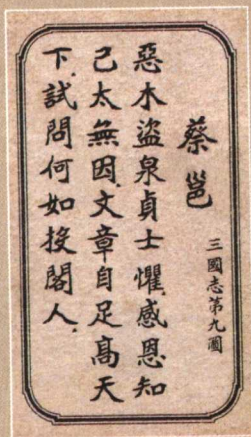 三國志第九圖
蔡邕
惡木盜泉貞士懼感恩知
己太無因文章自足高天
下試問何如投閣人